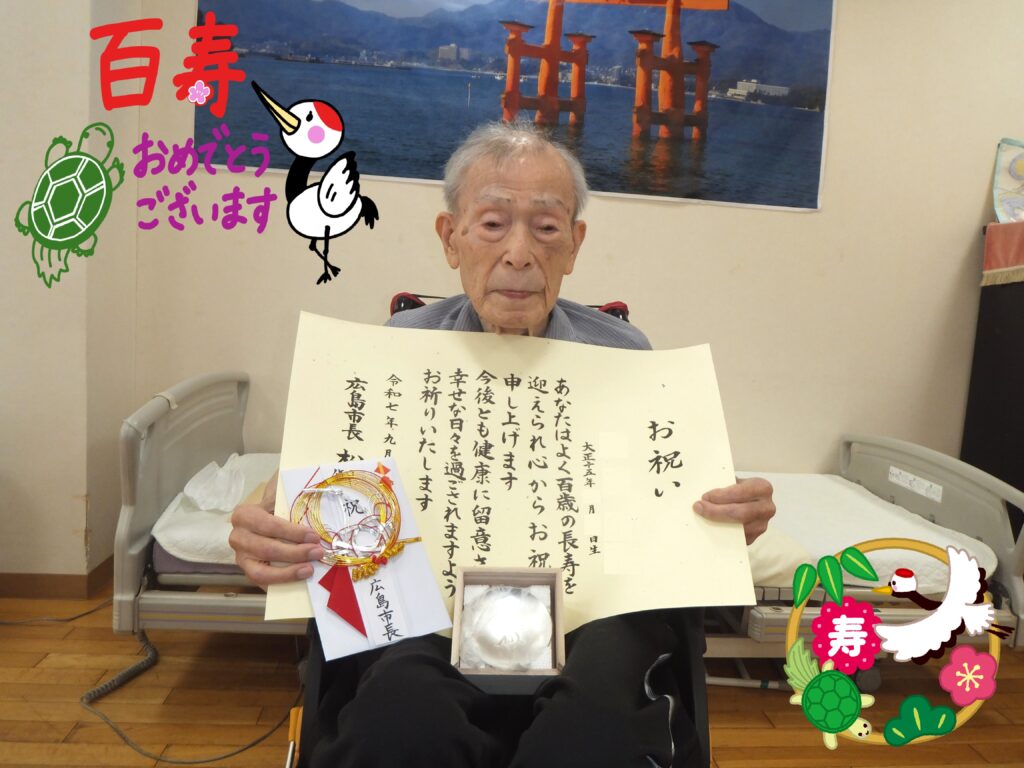 百寿
おめでとう
ございます
お祝い
大正十五年 月 日生
あなたはよく百歳の長寿を
迎えられ心からお祝
申し上げます
今後とも健康に留意さ
幸せな日々を過ごされますよう
お祈りいたします
令和七年九月
広島市長 松
祝
広島市長
寿